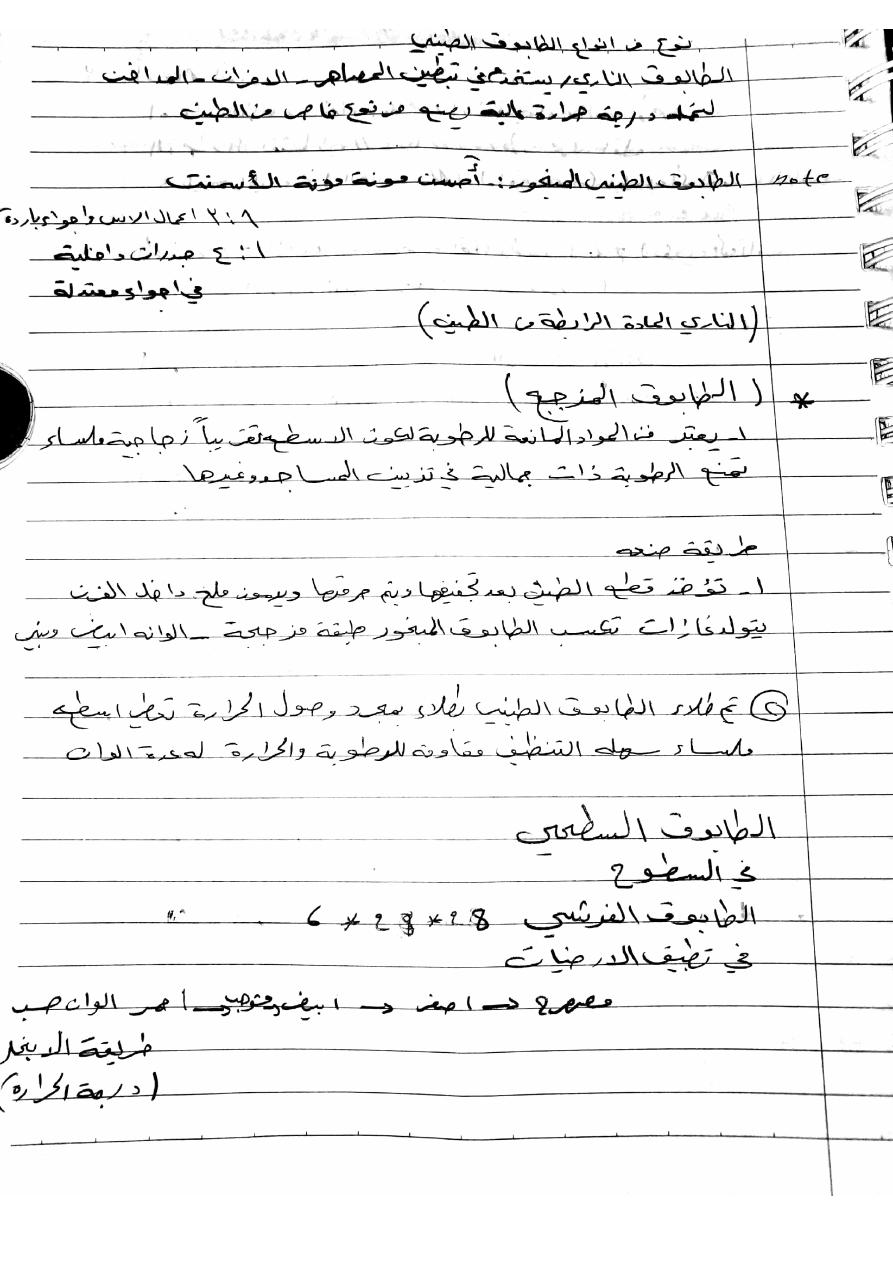 نوع من انواع الطابوق الطيني
الطابوق الناري/ يستخدم في تبطين المصاهر - الافران - المداخن
لتحمله درجة حرارة عالية يصنع من نوع خاص من الطين.
note الطابوق الطيني المفخور: أحسن مونة مونة الأسمنت
١:٣ اعمال الاسس واجواء باردة
١:٤ جدران داخلية
في اجواء معتدلة
(الناري المادة الرابطة من الطين)
* (الطابوق المزجج)
١- يعتبر من المواد المانعة للرطوبة لكون الاسطح تقريباً زجاجية ملساء
تمنع الرطوبة ذات جمالية في تزيين المساجد وغيرها
طريقة صنعه
١- تؤخذ قطع الطين بعد تجفيفها ويتم حرقها ويرمون ملح داخل الفرن
يتولد غازات تكسب الطابوق المفخور طبقة مزججة - الوانه ابيض وبني
② تم طلاء الطابوق الطيني بطلاء بمجرد وصول الحرارة تعطي اسطح
ملساء سهله التنظيف مقاومة للرطوبة والحرارة له عدة الوان
الطابوق السطحي
في السطوح
الطابوق الفرشي 28*28*6
في تطبيق الارضيات
مصهرج -> اصفر -> ابيض -> أحمر الوان حسب
طريقة
(درجة الحرارة)